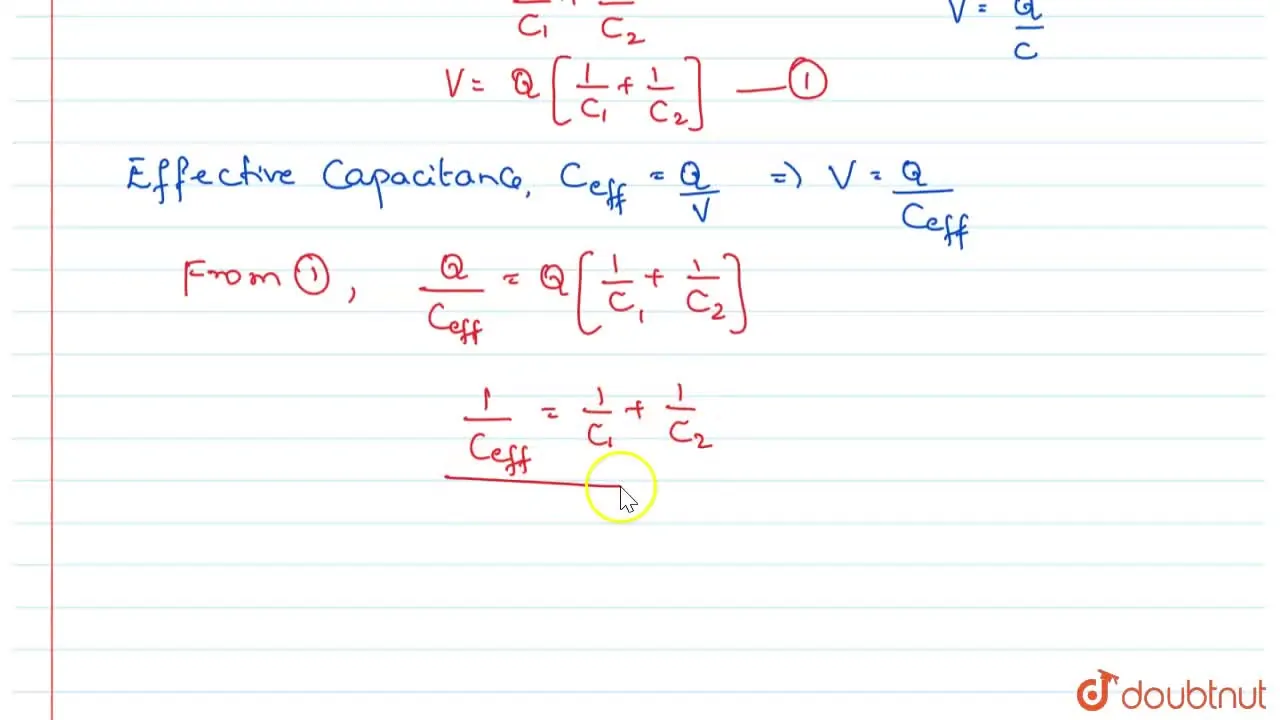 C₁ C₂ V = Q/C
V = Q [1/C₁ + 1/C₂] — ①
Effective Capacitance, Ceff = Q/V => V = Q/Ceff
From ①, Q/Ceff = Q [1/C₁ + 1/C₂]
1/Ceff = 1/C₁ + 1/C₂
doubtnut